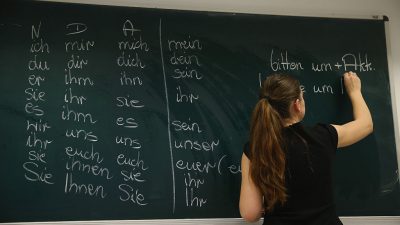 N D A
ich mir mich mein
du dir dich dein
er ihm ihn sein
Sie ihr sie ihr
es ihm es sein
wir uns uns unser
ihr euch euch euer (
sie ihnen sie ihr
Sie Ihnen Sie Ihr
bitten um + Akk.
um